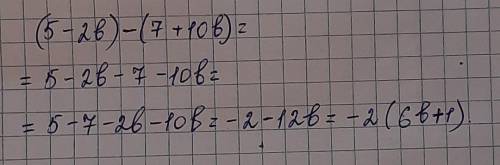 (5-2в)-(7+10в)=
=5-2в-7-10в=
=5-7-2в-10в=-2-12в=-2(6в+1)